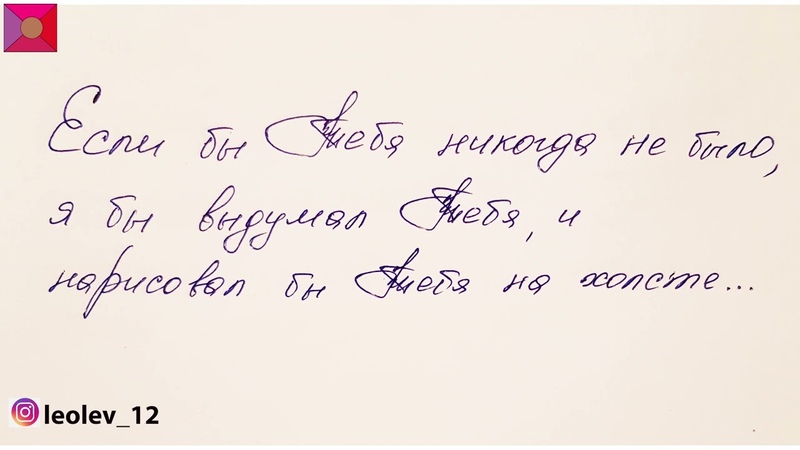 Если бы Тебя никогда не было,
я бы выдумал Тебя, и
нарисовал бы Тебя на холсте...
leolev_12